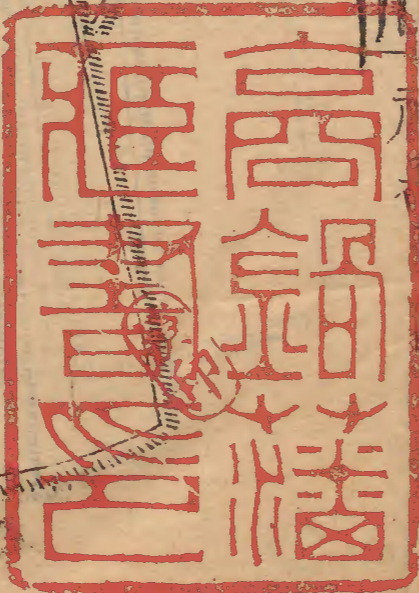 高鍋藩
藏書印